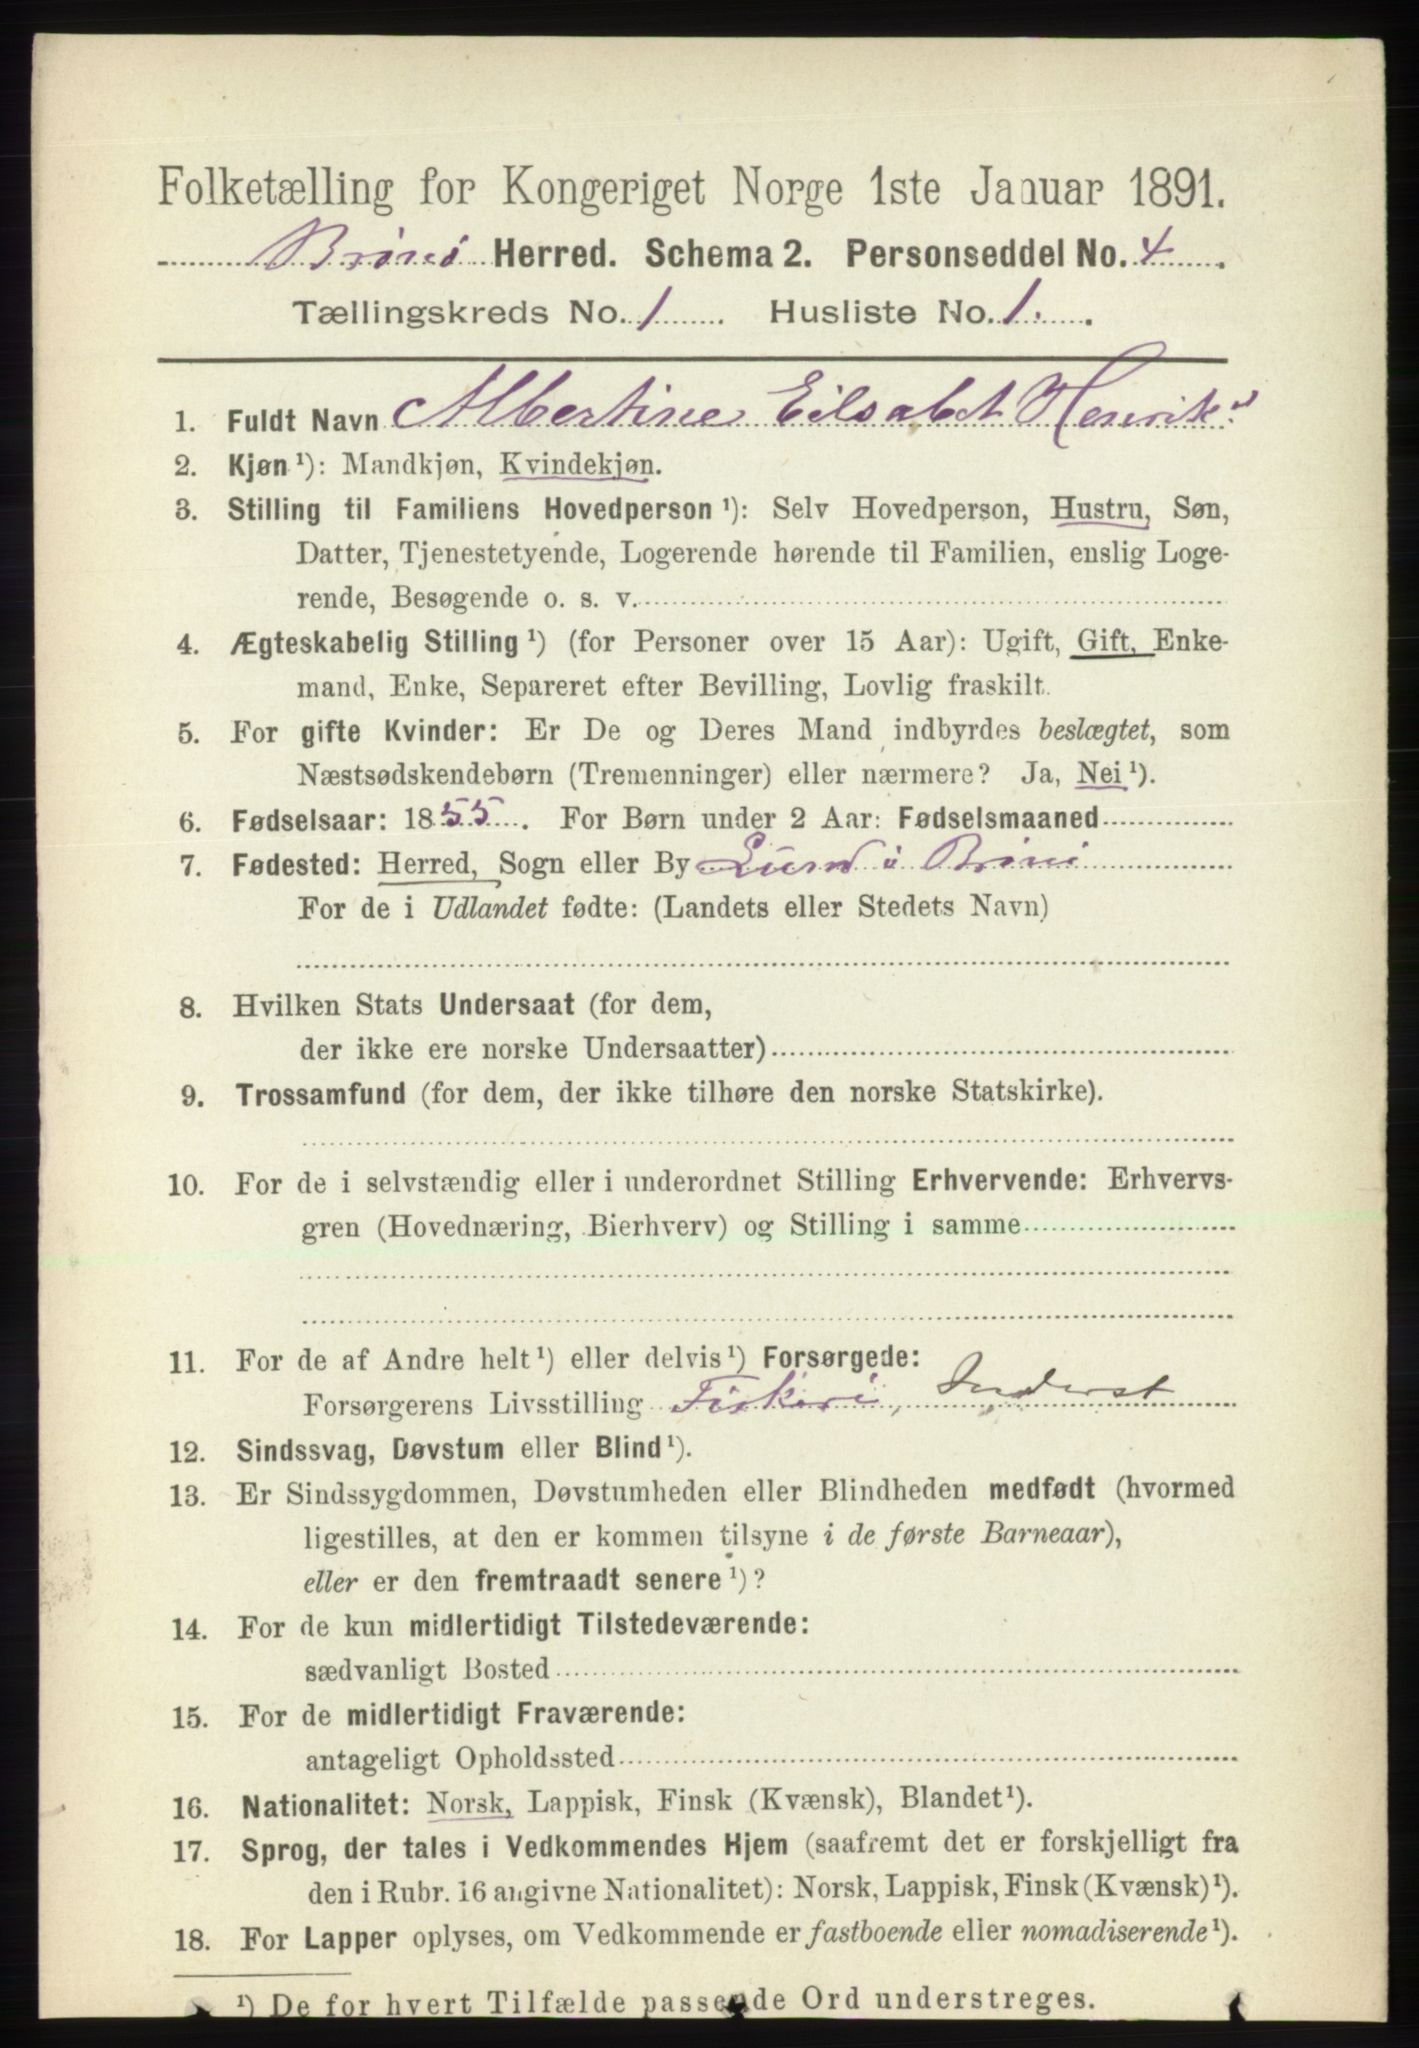 Folketælling for Kongeriget Norge 1ste Januar 1891.
Brønø Herred. Schema 2. Personseddel No. 4
Tællingskreds No. 1 Husliste No. 1.
1. Fuldt Navn Albertine Eilsabet Henrik.
2. Kjøn ¹): Mandkjøn, Kvindekjøn.
3. Stilling til Familiens Hovedperson ¹): Selv Hovedperson, Hustru, Søn,
Datter, Tjenestetyende, Logerende hørende til Familien, enslig Loge-
rende, Besøgende o. s. v.
4. Ægteskabelig Stilling ¹) (for Personer over 15 Aar): Ugift, Gift, Enke-
mand, Enke, Separeret efter Bevilling, Lovlig fraskilt.
5. For gifte Kvinder: Er De og Deres Mand indbyrdes beslægtet, som
Næstsødskendebørn (Tremenninger) eller nærmere? Ja, Nei ¹).
6. Fødselsaar: 1855. For Børn under 2 Aar: Fødselsmaaned
7. Fødested: Herred, Sogn eller By Lund i Brønø
For de i Udlandet fødte: (Landets eller Stedets Navn)
8. Hvilken Stats Undersaat (for dem,
der ikke ere norske Undersaatter)
9. Trossamfund (for dem, der ikke tilhøre den norske Statskirke).
10. For de i selvstændig eller i underordnet Stilling Erhvervende: Erhvervs-
gren (Hovednæring, Bierhverv) og Stilling i samme
11. For de af Andre helt ¹) eller delvis ¹) Forsørgede:
Forsørgerens Livsstilling Fiskeri, Inderst
12. Sindssvag, Døvstum eller Blind ¹).
13. Er Sindssygdommen, Døvstumheden eller Blindheden medfødt (hvormed
ligestilles, at den er kommen tilsyne i de første Barneaar),
eller er den fremtraadt senere ¹)?
14. For de kun midlertidigt Tilstedeværende:
sædvanligt Bosted
15. For de midlertidigt Fraværende:
antageligt Opholdssted
16. Nationalitet: Norsk, Lappisk, Finsk (Kvænsk), Blandet ¹).
17. Sprog, der tales i Vedkommendes Hjem (saafremt det er forskjelligt fra
den i Rubr. 16 angivne Nationalitet): Norsk, Lappisk, Finsk (Kvænsk) ¹).
18. For Lapper oplyses, om Vedkommende er fastboende eller nomadiserende ¹).
¹) De for hvert Tilfælde passende Ord understreges.